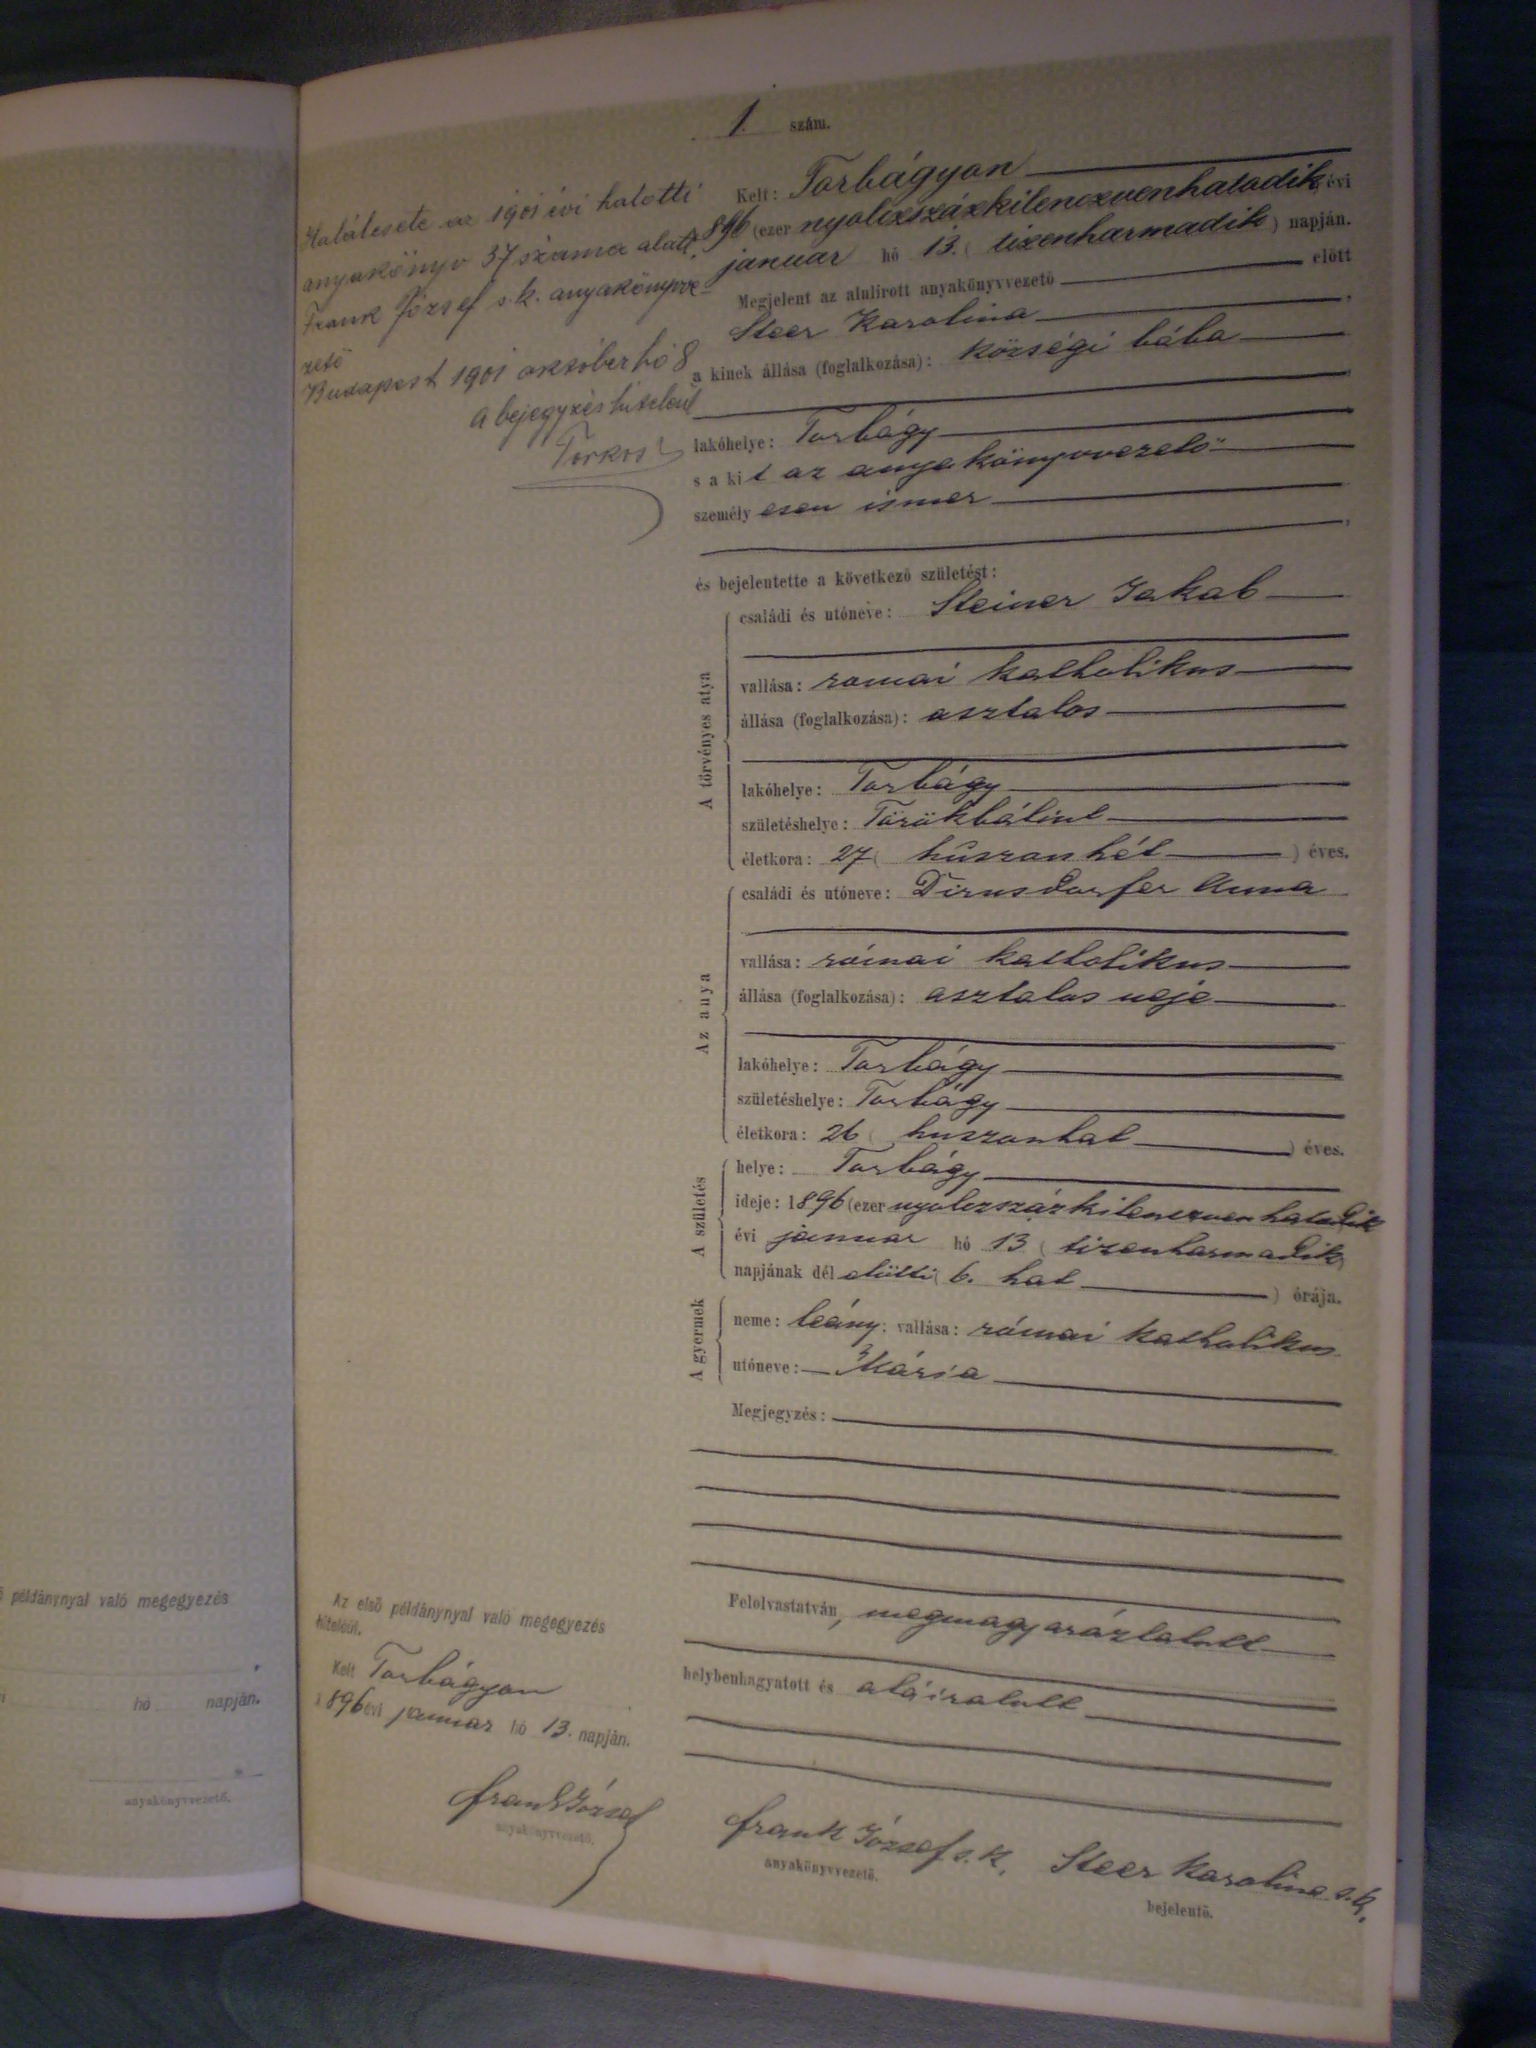 1. szám.
Kelt: Torbágyon
1896 (ezer nyolczszázkilenczvenhatodik) évi
januar hó 13. (tizenharmadik) napján.
Megjelent az alulirott anyakönyvvezető előtt
Steer Karolina,
a kinek állása (foglalkozása): községi bába
lakóhelye: Torbágy
s a kit az anyakönyvvezető
személyesen ismer
és bejelentette a következő születést:
A törvényes atya
családi és utóneve: Steiner Jakab
vallása: romai katholikus
állása (foglalkozása): asztalos
lakóhelye: Torbágy
születéshelye: Törökbálint
életkora: 27 (húszonhét) éves.
Az anya
családi és utóneve: Dirnsdorfer Anna
vallása: római katholikus
állása (foglalkozása): asztalos neje
lakóhelye: Torbágy
születéshelye: Torbágy
életkora: 26 (huszonhat) éves.
A születés
helye: Torbágy
ideje: 1896 (ezer nyolczszázkilenczvenhatodik
évi januar hó 13 (tizenharmadik)
napjának dél előtti (6. hat) órája.
A gyermek
neme: leány; vallása: római katholikus
utóneve: Mária
Megjegyzés:
Felolvastatván, megmagyaráztatott
helybenhagyatott és aláiratott
Frank József s. k.
anyakönyvvezető.
Steer Karolina s. k.
bejelentő.
Halálesete az 1901 évi halotti
anyakönyv 37 száma alatt.
Frank József s. k. anyakönyvve-
zető
Budapest 1901 október hó 8
A bejegyzés hiteleül
Torkos
Az első példánynyal való megegyezés
hiteléül.
Kelt Torbágyon
1896 évi januar hó 13. napján.
Frank József
anyakönyvvezető.
példánynyal való megegyezés
hó napján.
anyakönyvvezető.